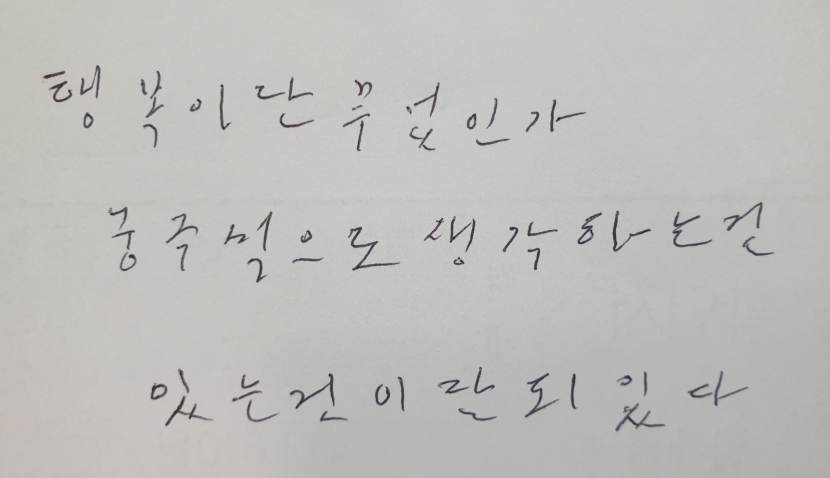 행복이란 무엇인가
궁극적으로 생각하는건
있는건이 말되있다